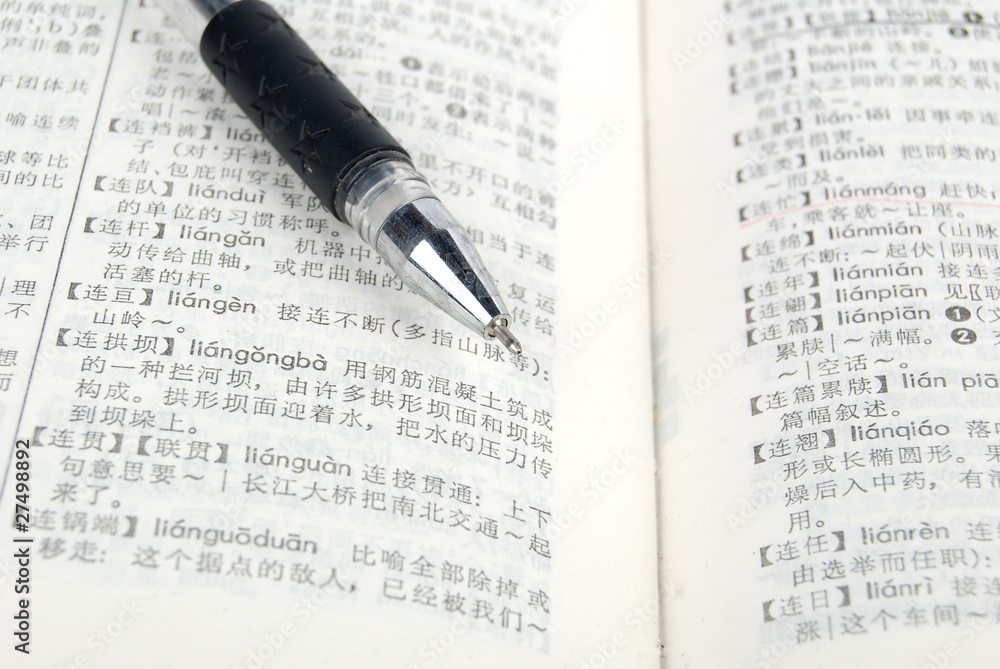 的单纯词,
声非叠的
于团体共
喻连续
球等比
间的比
、团
举行
理
不
想
而
包括
动作紧
唱|～滚
【连裆裤】lián
子(对‘开裆裤 里不开口的裤
结、包庇叫穿连 互相勾
【连队】liánduì 军队 相当于连
的单位的习惯称呼。
【连杆】liángǎn 机器中 复运
动传给曲轴,或把曲轴的 传给
活塞的杆。
【连亘】liángèn 接连不断(多指山脉等):
山岭～。
【连拱坝】liángǒngbà 用钢筋混凝土筑成
的一种拦河坝,由许多拱形坝面和坝垛
构成。拱形坝面迎着水,把水的压力传
到坝垛上。
【连贯】【联贯】liánguàn 连接贯通:上下
句意思要～|长江大桥把南北交通～起
来了。
连锅端】liánguōduān 比喻全部除掉或
移走:这个据点的敌人,已经被我们～
liánjiē 连接。
liánjīn (～儿)
的丈夫之间的亲戚关系
他们是～。
【连累】lián·lěi 因事牵连
受到损害。
【连类】liánlèi 把同类的
～而及。
【连忙】liánmáng 赶快
车,乘客就～让座。
【连绵】liánmián (山脉
连不断:～起伏|阴雨
【连年】liánnián 接连
【连翩】liánpiān 见〖联
【连篇】liánpiān ❶(文
累牍|～满幅。❷
～|空话～。
【连篇累牍】lián piā
篇幅叙述。
【连翘】liánqiáo 落叶
形或长椭圆形。果
燥后入中药,有清
用。
【连任】liánrèn 连
由选举而任职):
【连日】liánrì 接连
涨|这个车间～
Adobe Stock | 27498892